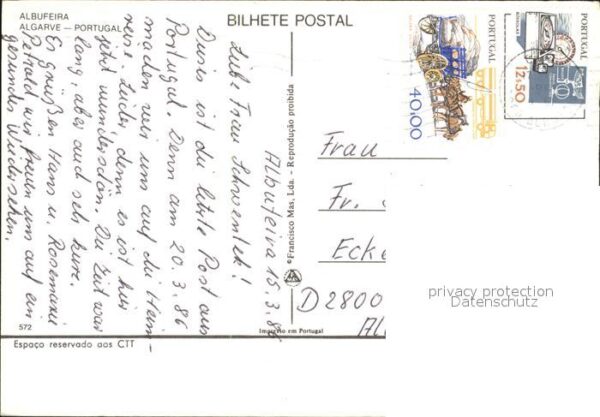 ALBUFEIRA
ALGARVE — PORTUGAL
BILHETE POSTAL
Albufeira 15.3.86
Liebe Frau
Dieses ist die letzte Post aus
Portugal. Denn am 20.3.86
machen wir uns auf die Heim-
reise. Leider, denn es ist hier
jetzt wunderschön. Die Zeit war
lang, aber auch sehr kurz.
Es grüßen Hans u. Rosemarie
wir freuen uns auf ein
gesundes Wiedersehen.
572
Espaço reservado aos CTT
© Francisco Mas, Lda. - Reprodução proibida
Impresso em Portugal
PORTUGAL
40,00
PORTUGAL
12,50
Frau
Fr.
Ecke
D 2800
privacy protection
Datenschutz